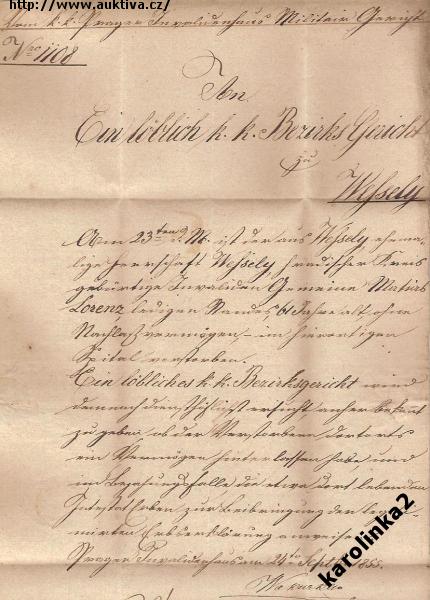 http://www.auktiva.cz/
Vom k. k. Prager Invalidenhaus Militair Gericht
Nro 1108
An
Ein löblich k. k. Bezirks Gericht
zu
Wessely
Am 23ten d. M. ist der aus Wessely, ehema-
lige Herrschaft Wessely, Hradischer Kreis
gebürtige Invaliden Gemeine
Lorenz ledigen Standes 61 Jahre alt, ohne
Nachlaßvermögen – im hierortigen
Spital verstorben.
Ein löbliches k. k. Bezirksgericht wird
demnach diensthöflichst ersucht anher bekannt
zu geben, ob der Verstorbene dortorts
ein Vermögen hinterlassen habe und
im Bejahungsfalle die etwa dort lebenden
Intestat Erben zur Beibringung der
Erbserklärung
Prager Invalidenhaus am 24ten Sept 1855.
karolinka2